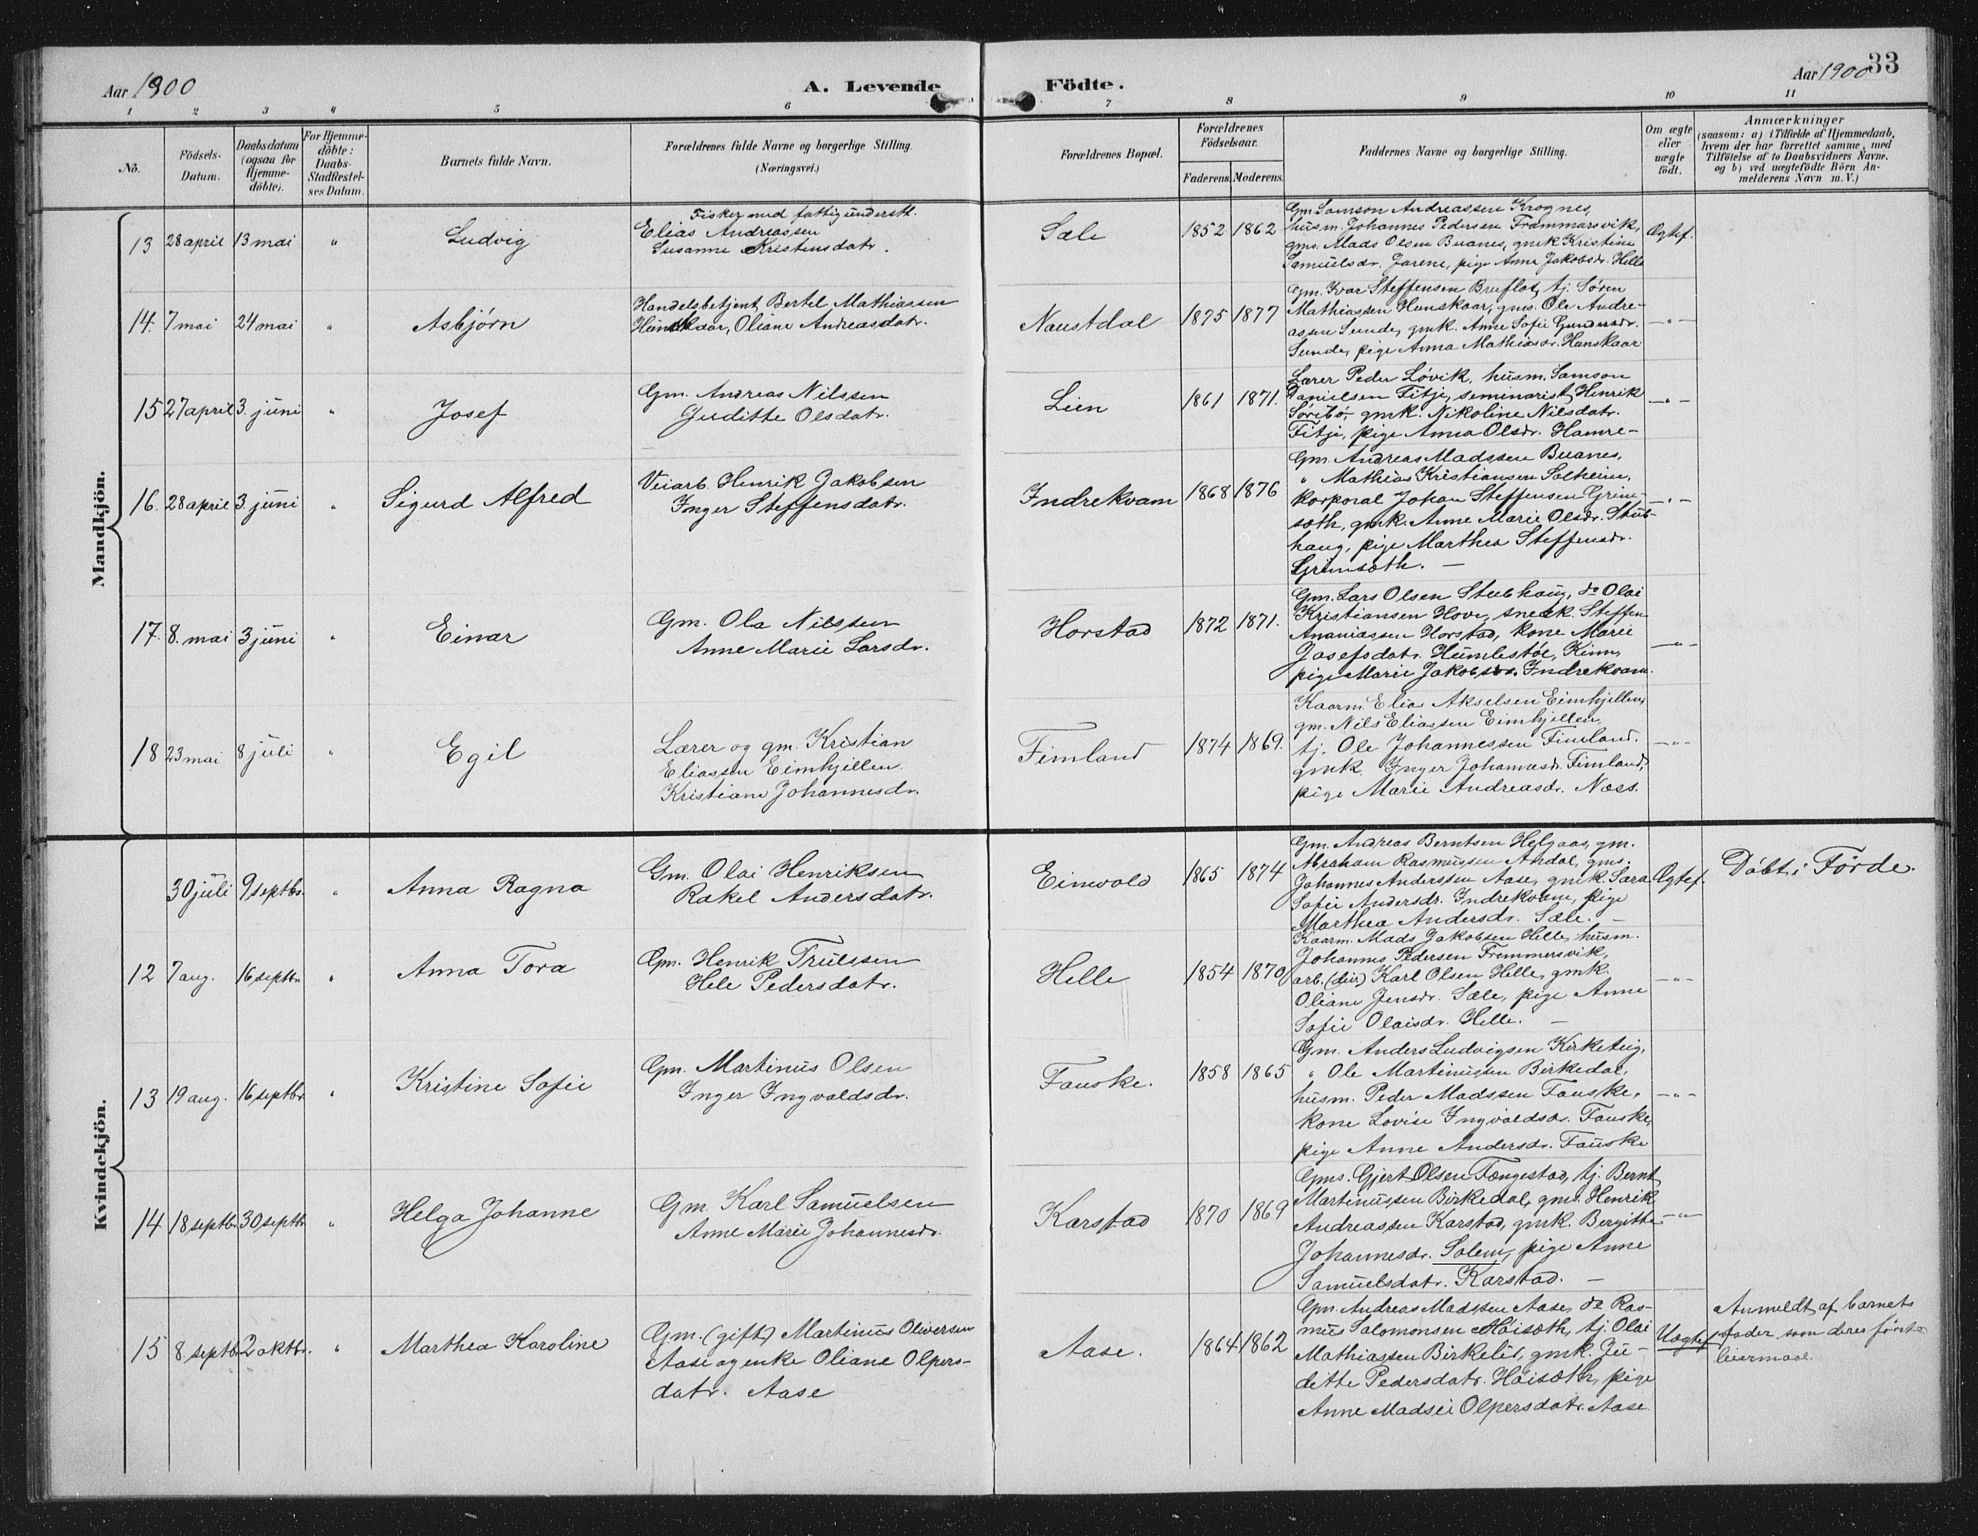 Aar 1900
A. Levende Födte.
Aar 1900 33
1 2 3 4 5 6 7 8 9 10 11
No.
Födsels-Datum.
Daabsdatum (ogsaa for Hjemme-döbte).
For Hjemme-döbte: Daabs-Stadfestel-ses Datum.
Barnets fulde Navn.
Forældrenes fulde Navne og borgerlige Stilling.
(Næringsvei.)
Forældrenes Bopæl.
Forældrenes Födselsaar.
Faderens. Moderens.
Faddernes Navne og borgerlige Stilling.
Om ægte eller uægte födt.
Anmærkninger
(saasom: a) i Tilfælde af Hjemmedaab,
hvem der har forrettet samme, med
Tilföielse af to Daabsvidners Navne,
og b) ved uægtefödte Börn An-
melderens Navn m. V.)
Mandkjön.
13 28 april 13 mai " Ludvig
Fisker med fattigunderst.
Elias Andreassen
Susanne Kristensdatr.
Sæle 1852 1862
Gm. Samson Andreassen Krognes,
husm. Johannes Pedersen Frammarsvik,
gms. Mads Olsen Buanes, gmk Kristine
Samuelsdr. Jarene, pige Anne Jakobsdr. Helle
Ægtef.
14. 7 mai 24 mai " Asbjørn
Handelsbetjent Bertel Mathiassen
Hunskaar, Oliane Andreasdatr.
Naustdal 1875 1877
Gm. Ivar Steffensen Bruflot, tj. Søren
Mathiassen Hunskaar, gms. Ole Andre-
assen Sunde, gmk. Anne Sofie Gundersdr.
Sunde, pige Anna Mathiasdr. Hunskaar
—"—
15 27 april 3. juni " Josef
Gm. Andreas Nilssen
Juditte Olsdatr.
Lien 1861 1871.
Lærer Peder Løvik, husm. Samson
Danielsen Fitje, seminarist Henrik
Sørebø, gmk. Nikoline Nilsdatr.
Fitje, pige Anna Olsdr. Hamre-
—"—
16. 28 april 3. juni " Sigurd Alfred
Veiarb. Henrik Jakobsen
Inger Steffensdatr.
Indrekvam 1868 1876
Gm. Andreas Madssen Buanes,
" Mathias Kristiansen Solheim,
korporal Johan Steffensen Grim-
sæth, gmk. Anne Marie Olsdr. Stub-
haug, pige Marthea Steffensdr.
Grimsæth. —
—"—
17. 8. mai 3 juni " Einar
Gm. Ola Nilssen
Anne Marie Larsdr.
Horstad 1872 1871.
Gm. Lars Olsen Stubhaug, do Olai
Kristiansen Hove, snedk. Steffen
Ananiassen Horstad, kone Marie
Josefsdatr. Humlestøl, Kinn,
pige Marie Jakobsdr. Indrekvam.
—"—
18 23 mai 8 juli " Egil
Lærer og gm. Kristian
Eliassen Eimhjellen.
Kristiane Johannesdr.
Fimland 1874 1869.
Kaarm. Elias Akselsen Eimhjellen,
gm. Nils Eliassen Eimhjellen,
tj. Ole Johannessen Fimland.
gmk. Inger Johannesdr. Fimland,
pige Marie Andreasdr. Næss.
—"—
Kvindekjön.
30 juli 9 septbr. " Anna Ragna
Gm. Olai Henriksen
Rakel Andersdatr.
Eimvold 1865 1874
Gm. Andreas Berntsen Helgaas, gm.
Abraham Rasmussen Ardal, gms.
Johannes Anderssen Aase, gmk. Sara
Sofie Andersdr. Indrekvam, pige
Marthea Andersdr. Sæle. —
Ægtef. Döbt i Förde.
12 7 aug. 16 septbr. " Anna Tora
Gm. Henrik Trulssen
Hele Pedersdatr.
Helle 1854 1870
Kaarm. Mads Jakobsen Helle, husm.
Johannes Pedersen Fremmersvik,
arb. (do) Karl Olsen Helle, gmk.
Oliane Jensdr. Sæle, pige Anne
Sofie Olaisdr. Helle. —
—"—
13 19 aug. 16 septbr. " Kristine Sofie
Gm. Martinus Olsen
Inger Ingvaldsdr.
Fauske. 1858 1865
Gm. Anders Ludvigsen Kirketeig,
" Ole Martinussen Birkedal,
husm. Peder Madssen Fauske,
kone Lovise Ingvaldsdr. Fauske,
pige Anne Andersdr. Fauske
—"—
14 18 septbr. 30 septbr. " Helga Johanne
Gm. Karl Samuelsen
Anne Marie Johannesdr.
Karstad 1870 1869
Gms. Gjert Olsen Tængestad, tj. Bernt
Martinussen Birkedal, gms. Henrik
Andreassen Karstad, gmk. Bergitte
Johannesdr. Solem, pige Anne
Samuelsdatr. Karstad. —
—"—
15 8. septbr. 2 oktbr. " Marthea Karoline
Gm. (gift) Martinus Oliversen
Aase og enke Oliane Olpers-
datr. Aase
Aase. 1864 1862
Gm. Andreas Madssen Aase, do Ras-
mus Salomonsen Høisæth, tj. Olai
Mathiassen Birkelid, gmk. Ju-
ditte Pedersdatr. Høisæth, pige
Anne Madsei Olpersdatr. Aase
Uægtef.
Anmeldt af barnets
fader som deres første
leiermaal.